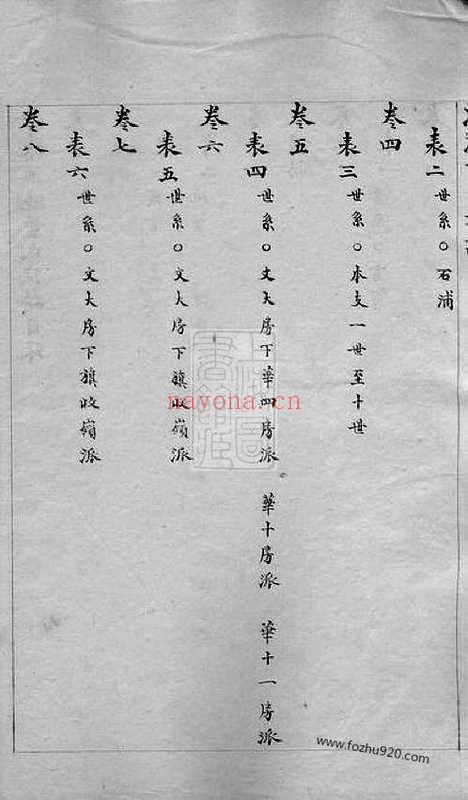 表二世系○石浦
卷四
表三世系○本支一世至十世
卷五
表四世系○文大房下華四房派 華十房派 華十一房派
卷六
表五世系○文大房下旗峧嶺派
卷七
表六世系○文大房下旗峧嶺派
卷八
nayona.cn
www.fozhu920.com